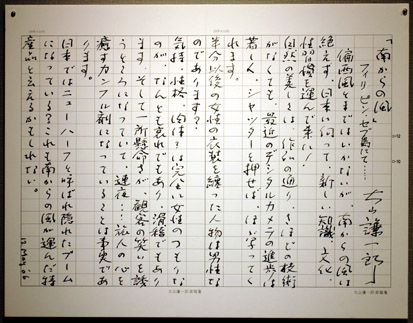 「南からの風」
フィリピン・セブ島にて……
大山謙一郎
偏西風とまではいかないが、南からの風は
絶えず、日本に向って、新しい知識、文化、
情報等、運んで来た!
自然の美しさは、作品の通り、さほどの技術
がなくても、最近のデジタルカメラの進歩は
著しく、シャッターを押せば、ほぼ写ってく
れます。
半分以後の女性の衣装を纏った人物は男性な
のであります?
気持、性格、肉体?は完全に女性のつもりな
のが、なんとも哀れでもあり、滑稽でもあり
ます。そして一所懸命さが、観客の笑いを誘
うところになっていて、連夜…旅人の心を
癒すカンフル剤になっていることは事実であ
ります。
日本ではニューハーフと呼ばれ隠れたブーム
になっている?これも南からの風が運んだ特
産品と云えるかもしれない。